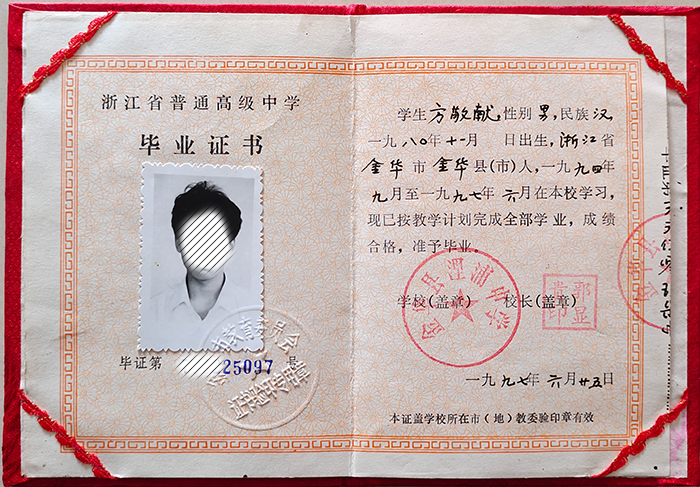 浙江省普通高级中学
毕业证书
毕证第 25097 号
学生方敬献,性别男,民族汉,
一九八〇年十一月 日出生,浙江省
金华市金华县(市)人,一九九四年
九月至一九九七年六月在本校学习,
现已按教学计划完成全部学业,成绩
合格,准予毕业。
学校(盖章) 校长(盖章)
金华县浬浦中学
一九九七年六月廿五日
本证盖学校所在市(地)教委验印章有效